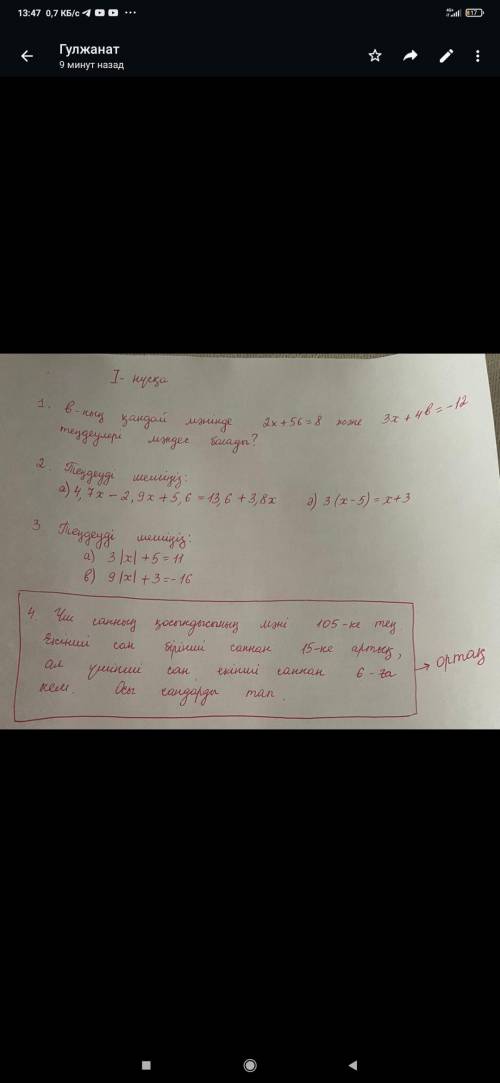 13:47 0,7 КБ/с
17
Гулжанат
9 минут назад
I - нұсқа
1. в-ның қандай мәнінде 2x + 56 = 8 және 3x + 4в = -12
теңдеулері мәндес болады?
2. Теңдеуді шешіңіз:
а) 4,7x - 2,9x + 5,6 = 13,6 + 3,8x
3(x-5) = x+3
3. Теңдеуді шешіңіз:
а) 3|x| + 5 = 11
в) 9|x| + 3 = -16
4. Үш санның қосындысының мәні 105-ке тең.
Екінші сан бірінші саннан 15-ке артық,
ал үшінші сан екінші саннан 6-ға
кем. Осы сандарды тап.
→ ортақ